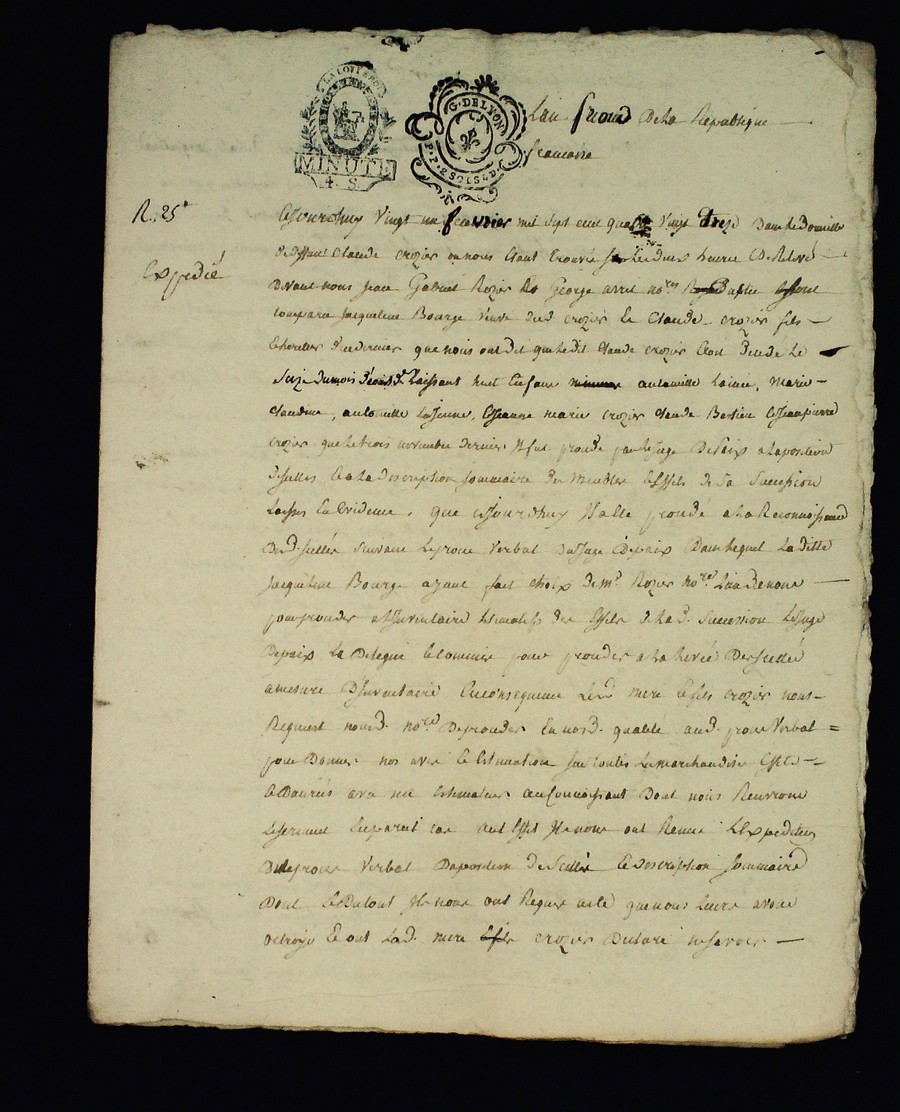 LA LOI ET LE ROI
MINUTE
4. S
G. DE LYON
P.P. 2 SOLS 4 D.
L'an second De la Republique
francoise
R. 25
Expedié
Cejourdhuy Vingt un fevrier mil sept cent quatre Vingt treze Dans le Domicille
de deffunt Claude crozier ou nous etant trouvés sur les deux heures De Relevé
Devant nous Jean Gabriel Rozier et George arret no.res publics
comparu Jacqueline Bourge veuve dud. crozier et Claude crozier fils
heritier de ce dernier que nous ont dit que ledit Claude crozier etoit decedé Le
Seize du mois d'aoust d.r Laissant huit Enfans antoinette Lainée, Marie
Claudine, antoinette La Jeune, et Jeanne marie crozier Claude Bastien et Jean pierre
crozier que le trois novembre dernier Il fut procedé par le Juge De Paix a l'aposition
de scellés et a la Description Sommaire des Meubles et Effets de La Succession
Laissés En Evidence, que cejourdhuy Il a été procedé a la Reconnoissance
Des d. scellés Suivant Le procès Verbal du Juge de paix Dans lequel La ditte
Jacqueline Bourge ayant fait choix de m.r Rozier no.re L'un de nous
pour proceder a l'Inventaire Estimatif des Effets de la d. Succession Le Juge
De paix La Delegué et commis pour proceder a la Levée Des scellés
a mesure D'Inventaire En consequence Les d. mere et fils crozier nous
Requierent nous d. no.res De proceder En nos d. qualités aud. proces Verbal
pour Donner nos avis et Estimation sur toutes Les marchandises Effets
et Danrées avec un Estimateur au connoissant Dont nous Recevrons
Le serment En pareil cas au Effet Ils nous ont Remis L'Expedition
Du proces Verbal D'aposition de Scellé et Description Sommaire
Dont et Du tout Ils nous ont Requis acte que nous Leurs avons
octroyé Et ont Lad. mere crozier Declaré ne savoir